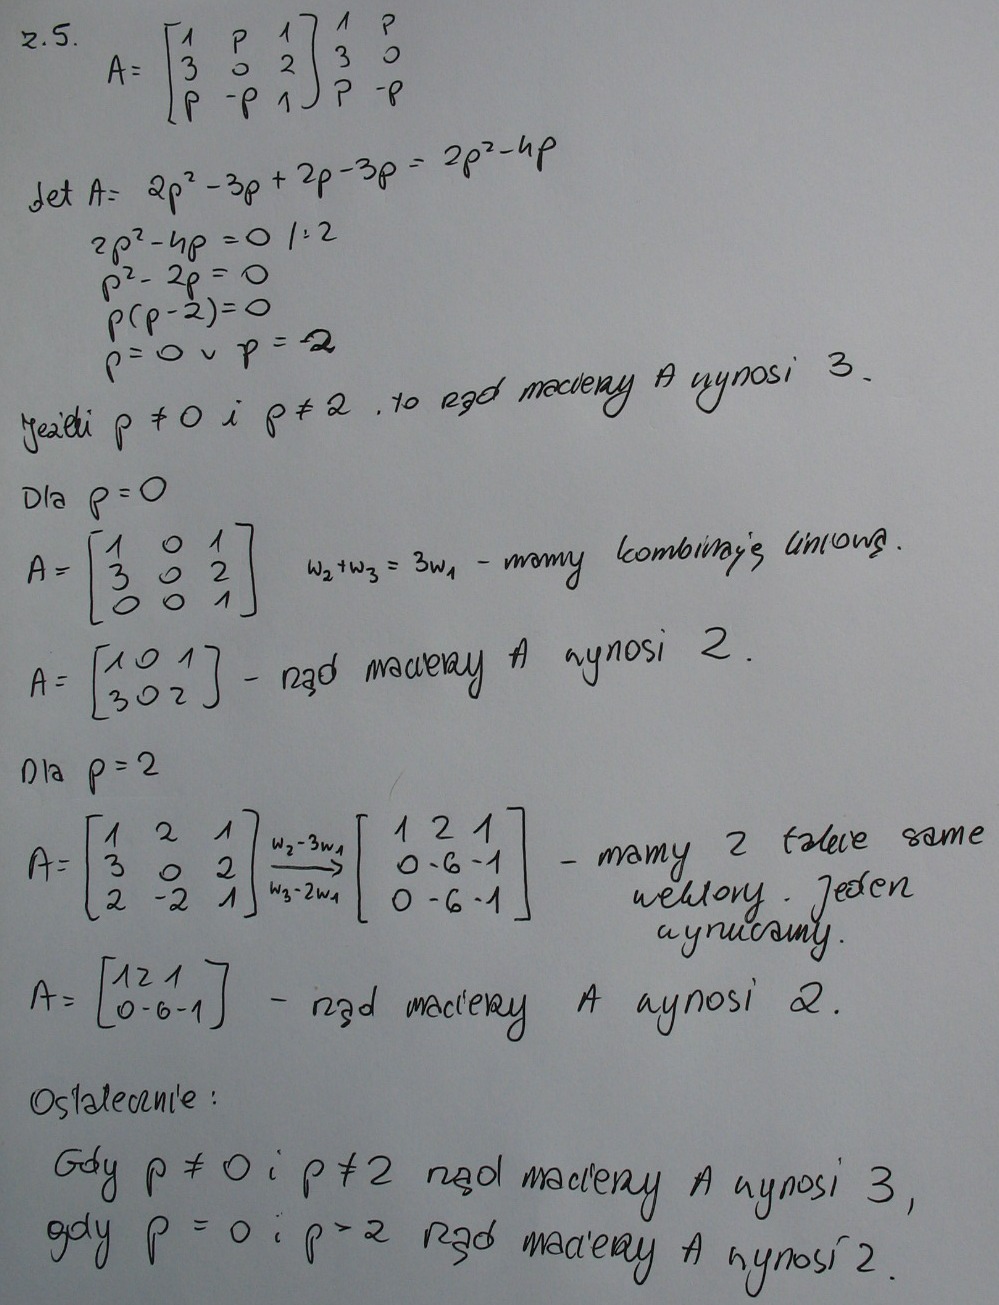 z.5.
A = [1 p 1] 1 p
[3 0 2] 3 0
[p -p 1] p -p
det A = 2p² - 3p + 2p - 3p = 2p² - 4p
2p² - 4p = 0 /:2
p² - 2p = 0
p(p-2) = 0
p = 0 ∨ p = 2
Jeżeli p ≠ 0 i p ≠ 2, to rząd macierzy A wynosi 3.
Dla p = 0
A = [1 0 1]
[3 0 2] w₂+w₃ = 3w₁ - mamy kombinację liniową.
[0 0 1]
A = [1 0 1]
[3 0 2] - rząd macierzy A wynosi 2.
Dla p = 2
A = [1 2 1] w₂-3w₁ [1 2 1]
[3 0 2] → [0 -6 -1] - mamy 2 takie same
[2 -2 1] w₃-2w₁ [0 -6 -1] wektory. Jeden
wyrzucamy.
A = [1 2 1]
[0 -6 -1] - rząd macierzy A wynosi 2.
Ostatecznie:
Gdy p ≠ 0 i p ≠ 2 rząd macierzy A wynosi 3,
gdy p = 0 i p = 2 rząd macierzy A wynosi 2.